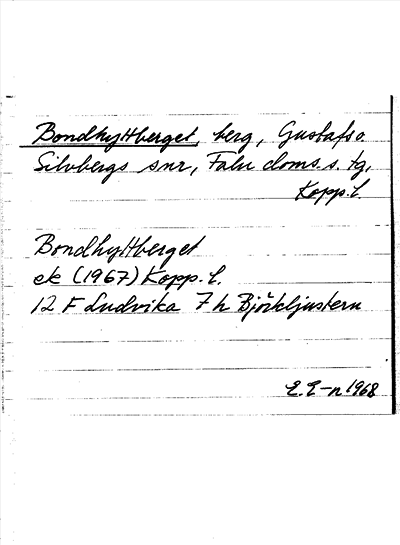 Bondhyttberget, berg, Gustafs o.
Silvbergs snr, Falu doms. s. tg,
Kopp. l.
Bondhyttberget
ek (1967) Kopp. l.
12 F Ludvika 7 h Björkljustern
E. E-n 1968